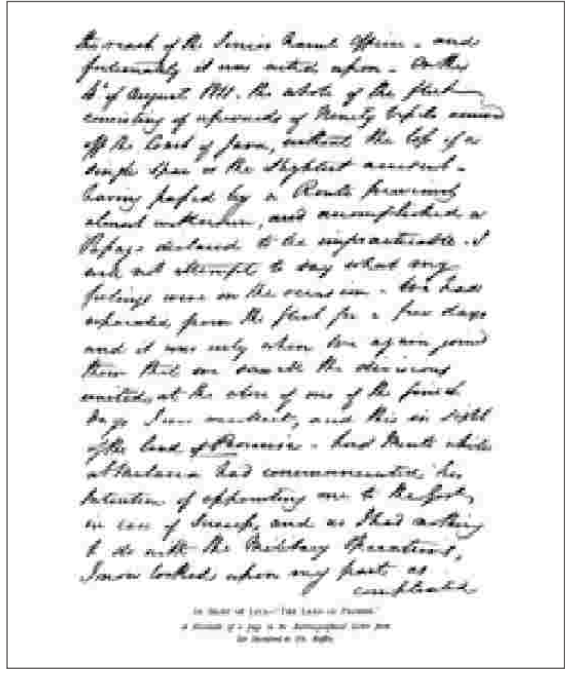 the reach of the Senior Naval Officer - and
fortunately it was acted upon - On the
4th of August 1811. the whole of the fleet
consisting of upwards of Ninety Vessels
off the Coast of Java, without the loss of a
single Spar or the slightest accident -
having passed by a Route previously
almost unknown, and accomplished a
Passage declared to be impracticable. I
will not attempt to say what my
feelings were on the occasion - We had
separated from the fleet for a few days
and it was only when we again joined
them that we saw all the divisions
united, at the close of one of the finest
days I ever, and this in sight
of the land of Promise - Lord Minto while
at Malacca had communicated his
Intention of appointing me to the Govt,
in case of Success, and as I had nothing
to do with the Military Operations,
I now looked upon my part as
completed
IN SIGHT OF JAVA—"THE LAND OF PROMISE."
A Facsimile of a page in the Autobiographical Letter from
Sir Stamford to Dr. Raffles